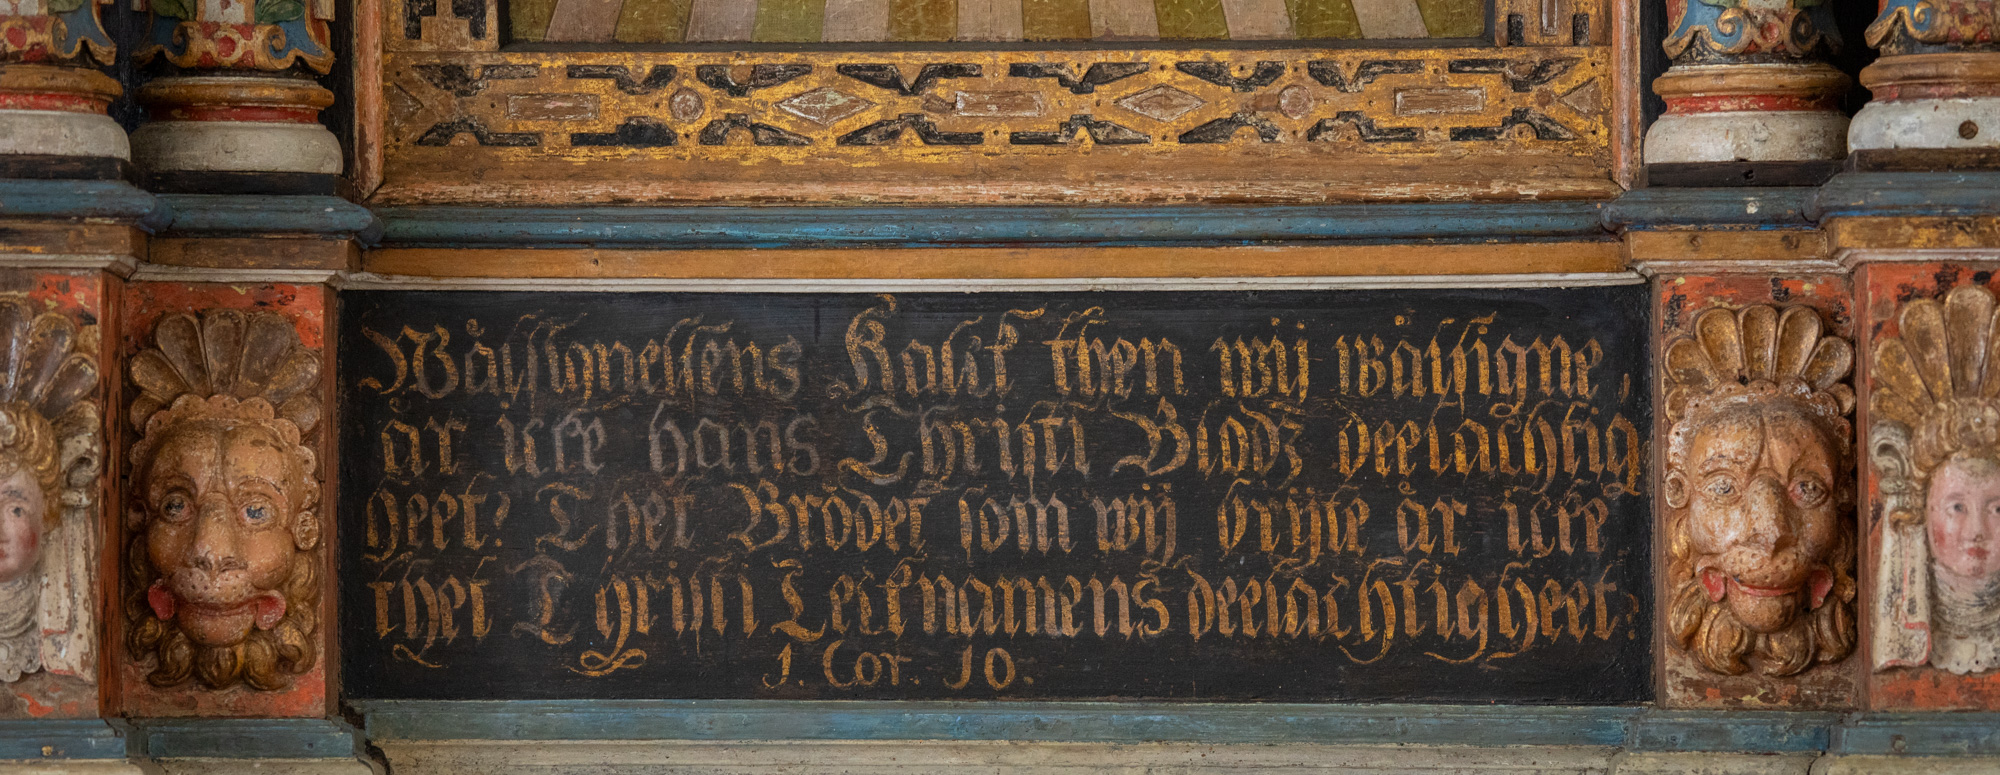 Wålsignelsens Kalck then wij wålsigne,
år icke hans Christi Blodz deelachtig
heet? Thet Brödet som wij bryte år icke
thet Christi Leeknamens deelachtigheet?
1. Cor. 10.